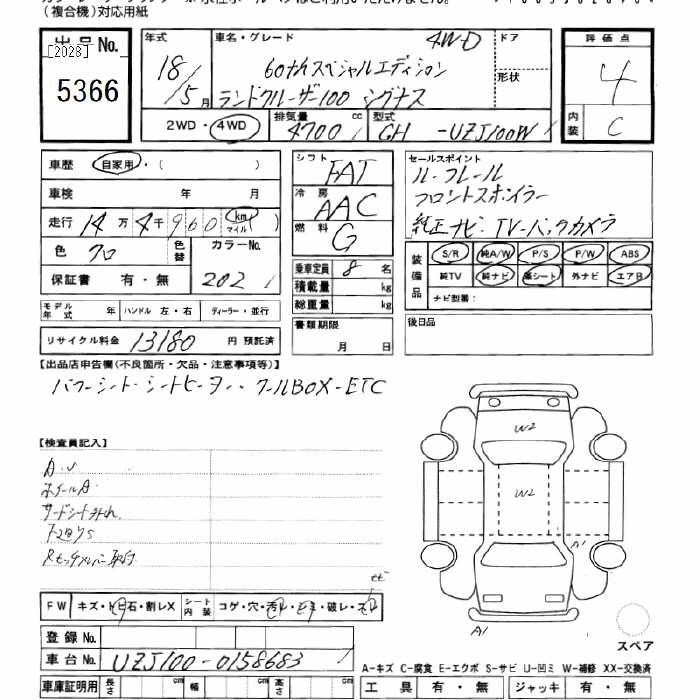 (複合機)対応用紙
出品No.
[2028]
5366
年式
18/5月
車名・グレード
4WD
60thスペシャルエディション
ランドクルーザー100 シグナス
ドア
形状
評価点
4
内装
C
2WD・4WD
排気量
4700
cc
型式
GH -UZJ100W
車歴
自家用・( )
車検 年 月
走行 14万4千960 km マイル
色 クロ
色替
カラーNo.
202
保証書 有・無
モデル年式 年 ハンドル 左・右 ディーラー・並行
リサイクル料金 13180 円 預託済
シフト FAT
冷房 AAC
燃料 G
乗車定員 8 名
積載量 kg
総重量 kg
書類期限
月 日
セールスポイント
ルーフレール
フロントスポイラー
純正ナビ・TV-バックカメラ
装備品
S/R 純A/W P/S P/W ABS
純TV 純ナビ 革シート 外ナビ エアB
ナビ型番:
後日品
【出品店申告欄(不良箇所・欠品・注意事項等)】
パワーシート・シートヒーター・クールBOX-ETC
【検査員記入】
A.U
ホイールA
サードシート外れ
W2
W2
A1
A1
FW キズ・トビ石・割レX
シート内装 コゲ・穴・汚レ・
・破レ・
登録No.
車台No. UZJ100-0158683
スペア
A-キズ C-腐食 E-エクボ S-サビ U-凹ミ W-補修 XX-交換済
車庫証明用 長さ 幅 高さ
工具 有・無 ジャッキ 有・無